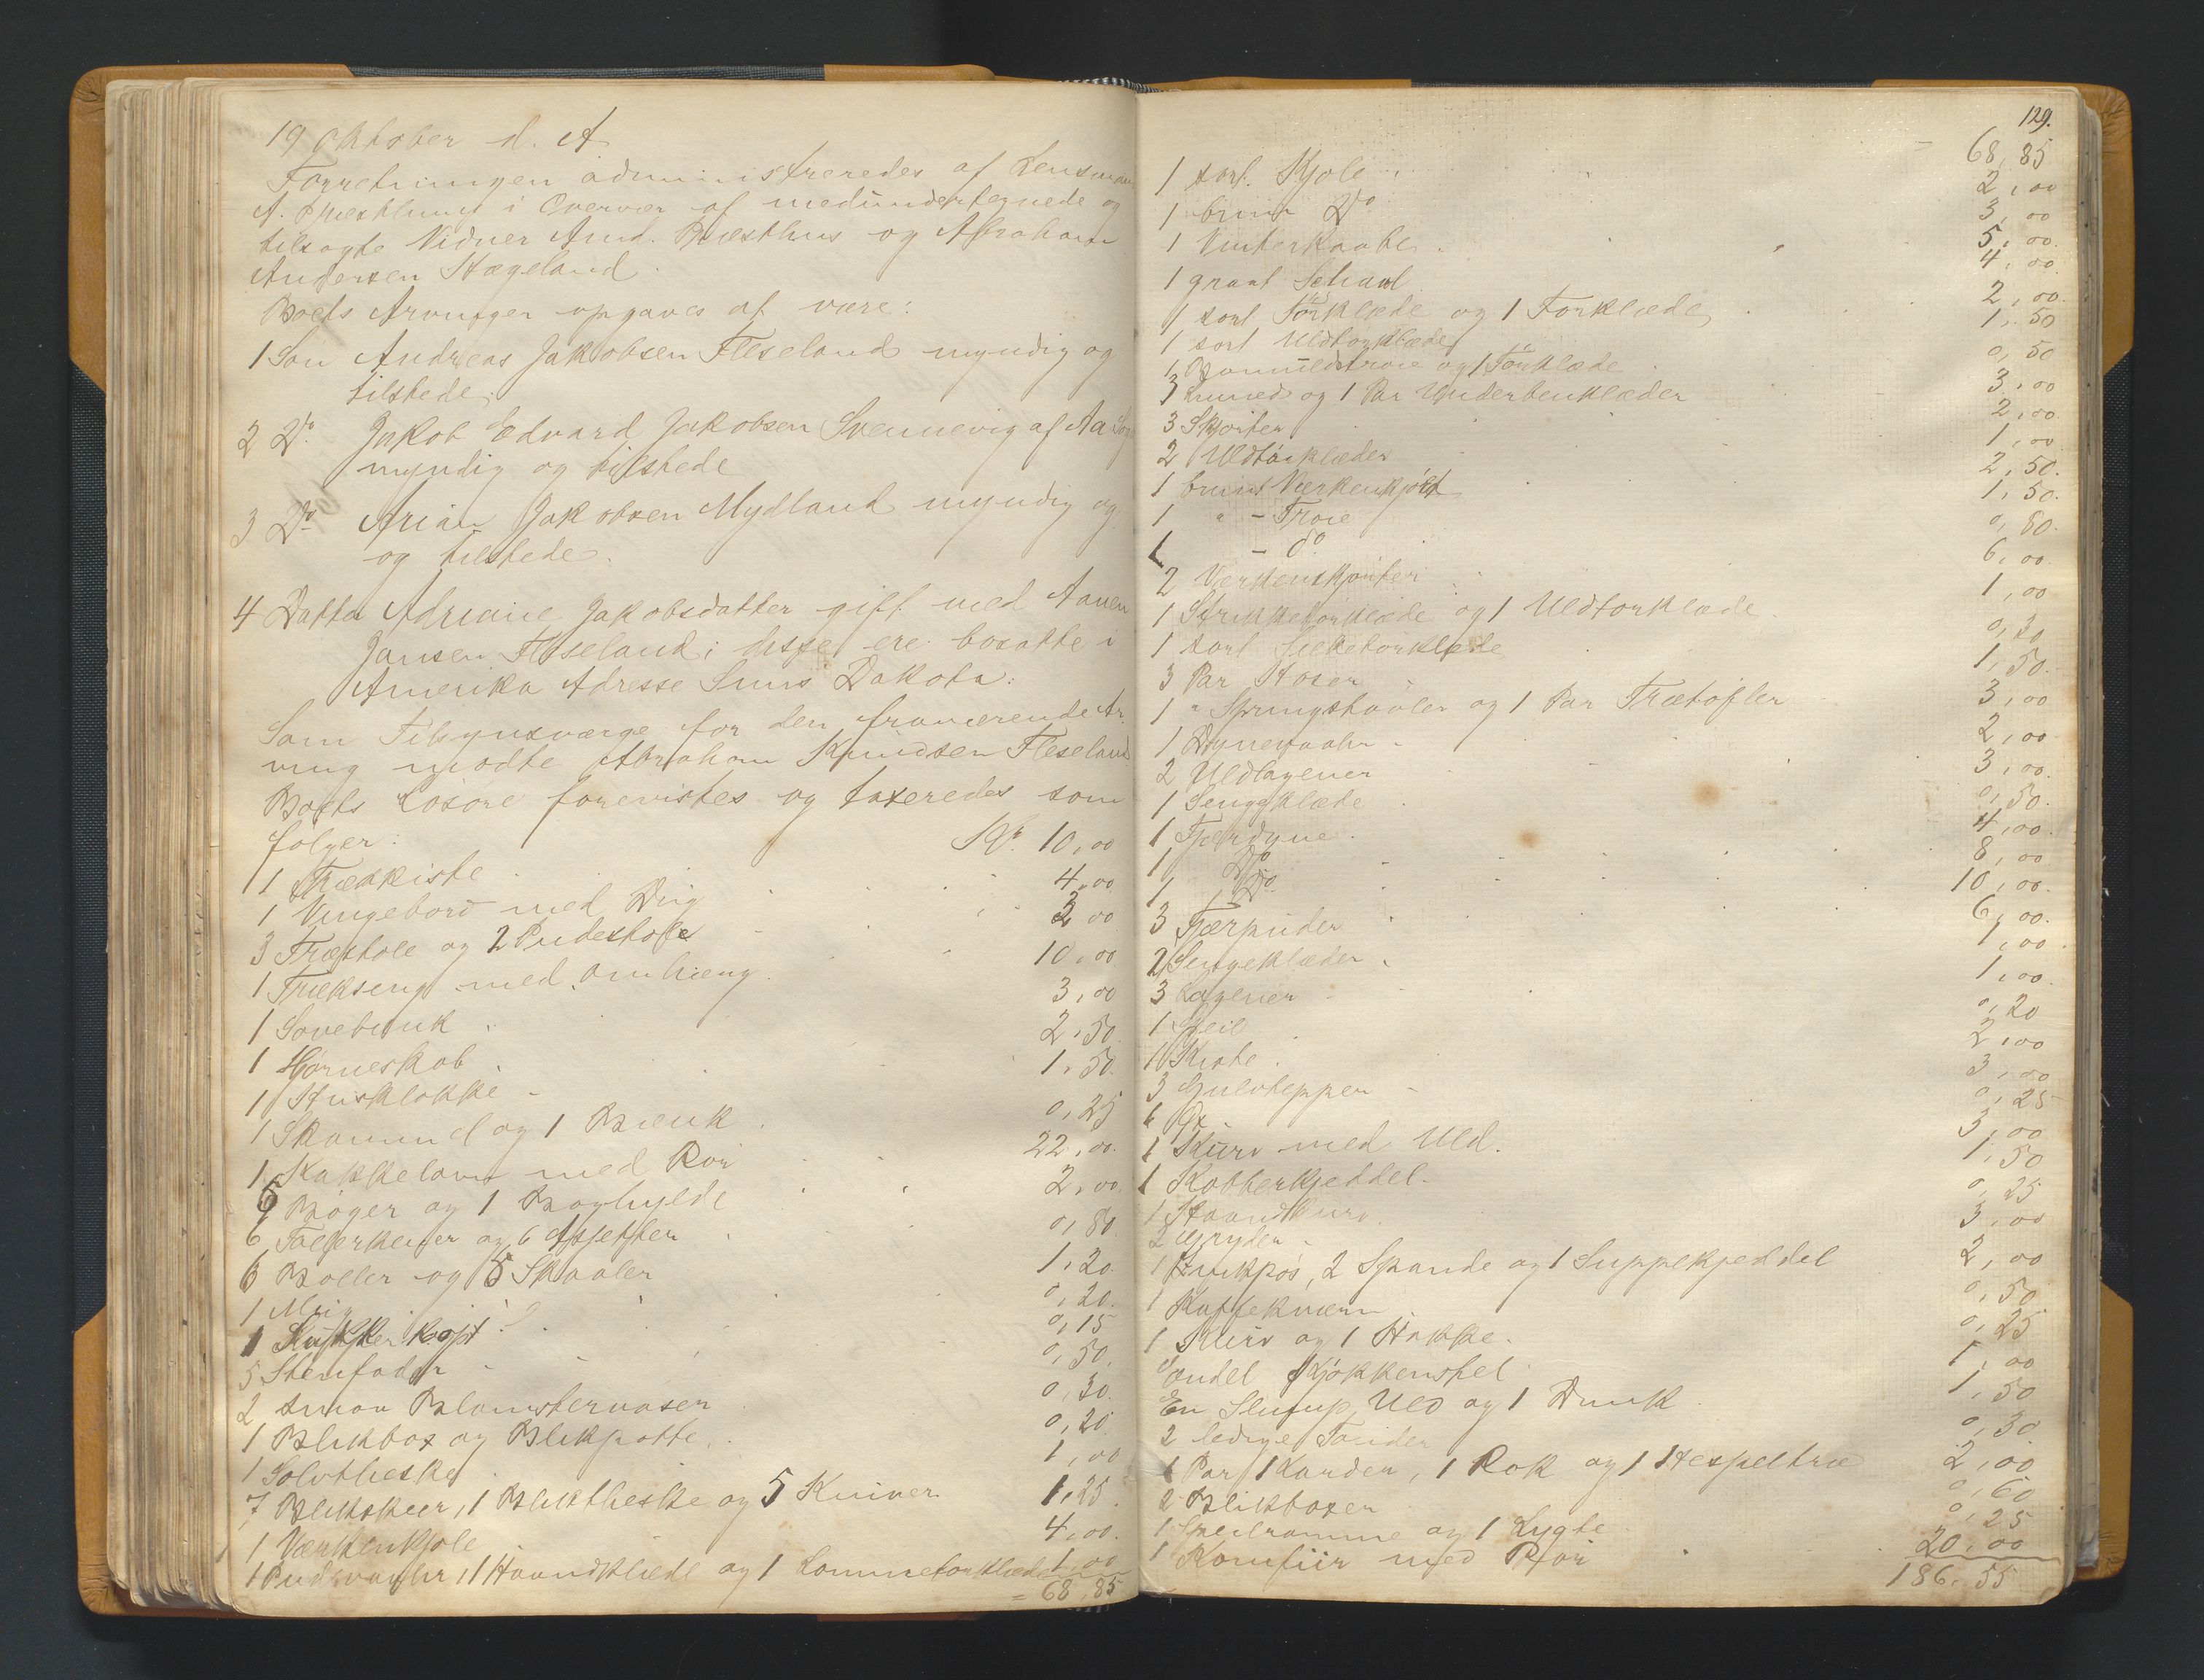 19 Oktober d. A
Forretningen administreredes af Lensmand
A. i Overvær af medundertegnede og
tilsagte Vidner And. Bræsthus og Abraham
Andersen Hægeland.
Boets Arvinger opgaves at være:
1 Søn Andreas Jakobsen Fleseland myndig og
tilstede.
2 Do Jakob Edvard Jakobsen Svennevig af Aa Sogn
myndig og tilstede
3 Do Arian Jakobsen Mydland myndig og
og tilstede.
4 Datter Adriane Jakobsdatter gift med Aanen
Jansen Fleseland; disse ere bosatte i
Amerika Adresse Dakota:
Som Tilsynsværge for den fraværende Ar-
ving mødte Abraham Knudsen Fleseland
Boets Løsøre forevistes og taxeredes som
følger:
1 Trækiste Kr. 10,00
1 Vingebord med Dug 4,00
3 Træstole og 2 Pudestole 3,00
1 Trækseng med Omhæng 10,00
1 Sovebænk 3,00
1 Hørneskab 2,50
1 Husklokke 1,50
1 Skammel og 1 Bænk 0,25
1 Kakkelovn med Rør 22,00
6 Bøger og 1 Boghylde 2,00
6 Tallerkener og 6 Assjetter 0,80
6 Boller og 5 Skaaler 1,20
1 Mug 0,20
1 Sukkerkop 0,15
5 Stenfader 0,50
2 smaa Blomstervaser 0,30
1 Blikbox og Blikpotte 0,20
1 Sølvtheske 1,00
7 Blikskeer, 1 Bliktheske og 5 Kniver 1,25
1 Værkenkjole 4,00
1 Pudevaahr, 1 Haandklæde og 1 Lommetørklæde 1,00
= 68,85
129.
68,85
1 sort Kjole 2,00
1 brun Do 3,00
1 Vinterkaabe 5,00
1 graat Schawl 4,00
1 sort Tørklæde og 1 Forklæde 2,00
1 sort Uldtørklæde 1,50
1 Bomuldstrøie og 1 Tørklæde 0,50
3 Linned og 1 Par Underbenklæder 3,00
3 Skjorter 2,00
2 Uldtørklæder 1,00
1 brunt Værkenskjørt 2,50
1 " - Trøie 1,50
1 - do 0,80
2 Værkenskjørter 6,00
1 Strikketørklæde og 1 Uldtørklæde 1,00
1 sort Silketørklæde 0,20
3 Par Hoser 1,50
1 " Springstøvler og 1 Par Trætøfler 3,00
1 Dynevaahr 2,00
2 Uldlagener 3,00
1 Sengeklæde 0,50
1 Fjerdyne 4,00
1 Do 8,00
1 Do 10,00
3 Fjærpuder 6,00
2 Sengeklæder 1,00
3 Lagener 1,00
1 Speil 0,20
1 Kiste 2,00
3 Gulvtepper 3,00
1 Øx 0,25
1 Kurv med Uld 3,00
1 Kobberkjeddel 1,50
1 Haandkurv 0,25
2 Gryder 3,00
1 Zinkpøs, 2 Spande og 1 Suppekjeddel 2,00
1 Kaffekværn 0,50
1 Kurv og 1 Hakke 0,25
Endel Kjøkkenstel 1,00
En Slump Ved og 1 Dunk 1,50
2 ledige Tønder 0,30
1 Par Karder, 1 Rok og 1 Hespeltræ 2,00
2 Blikboxer 0,60
1 Speilramme og 1 Lygte 0,25
1 Komfür med Rør 20,00
186,55